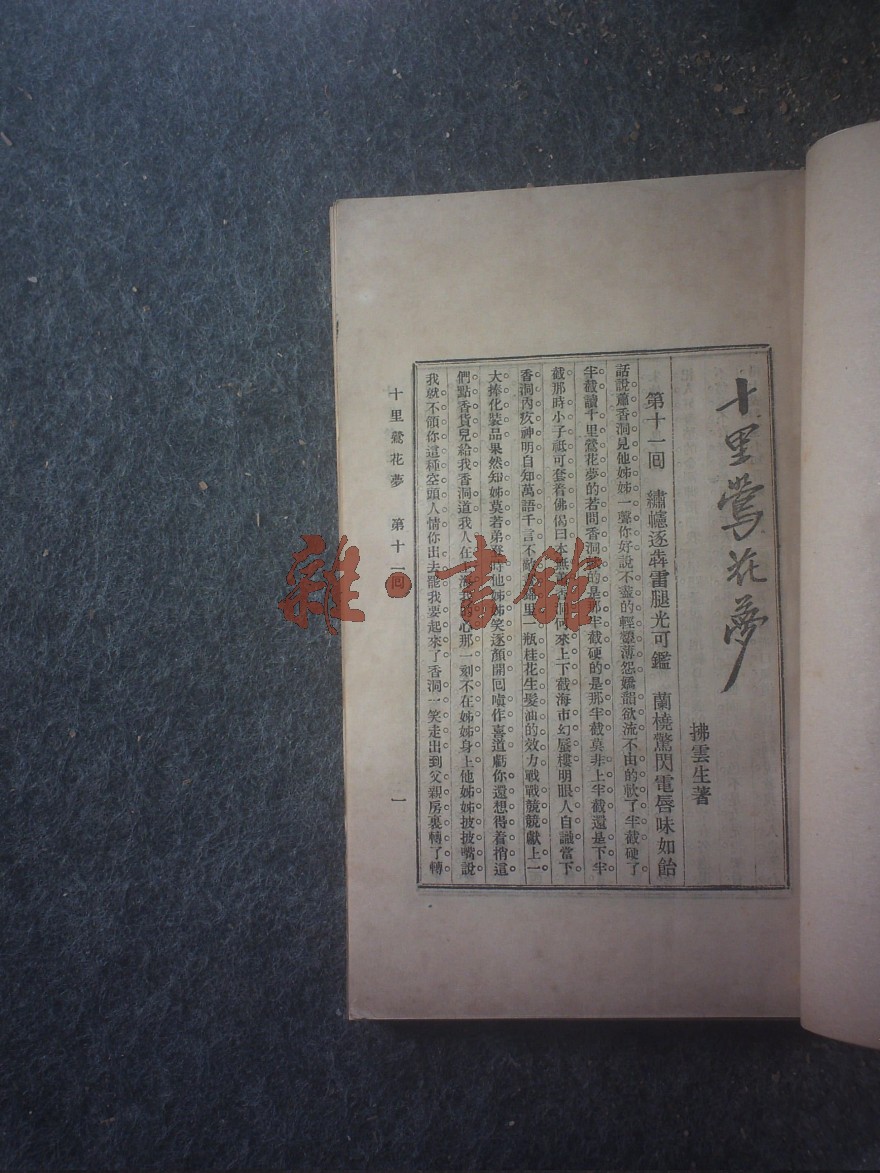 十里鶯花夢
拂雲生著
第十一回　繡幰逐犇雷腿光可鑑　蘭橈驚閃電唇味如飴
話說蕭香洞見他姊姊一聲你好說不盡的輕顰薄怨嬌韻欲流不由的軟了半截硬了
半截讀十里鶯花夢的若問香洞軟的是那半截硬的是那半截莫非上半截還是下半
截那時小子祗可套着佛偈曰本無香何來上下截海市幻蜃樓明眼人自識當下
香洞內疚神明自知萬語千言不敵里一瓶桂花生髮油的效力戰戰競競獻上一
大捧化裝品果然知姊莫若弟時他姊姊笑逐顏開回嗔作喜道虧你還想得着捎這
們點香貨兒給我香洞道我人在上海我的心那一刻不在姊姊身上他姊姊披披嘴說
我就不領你這種空頭人情你出去罷我要起來了香洞一笑走出到父親房裏轉了轉
十里鶯花夢　第十一回　一
雜·書館